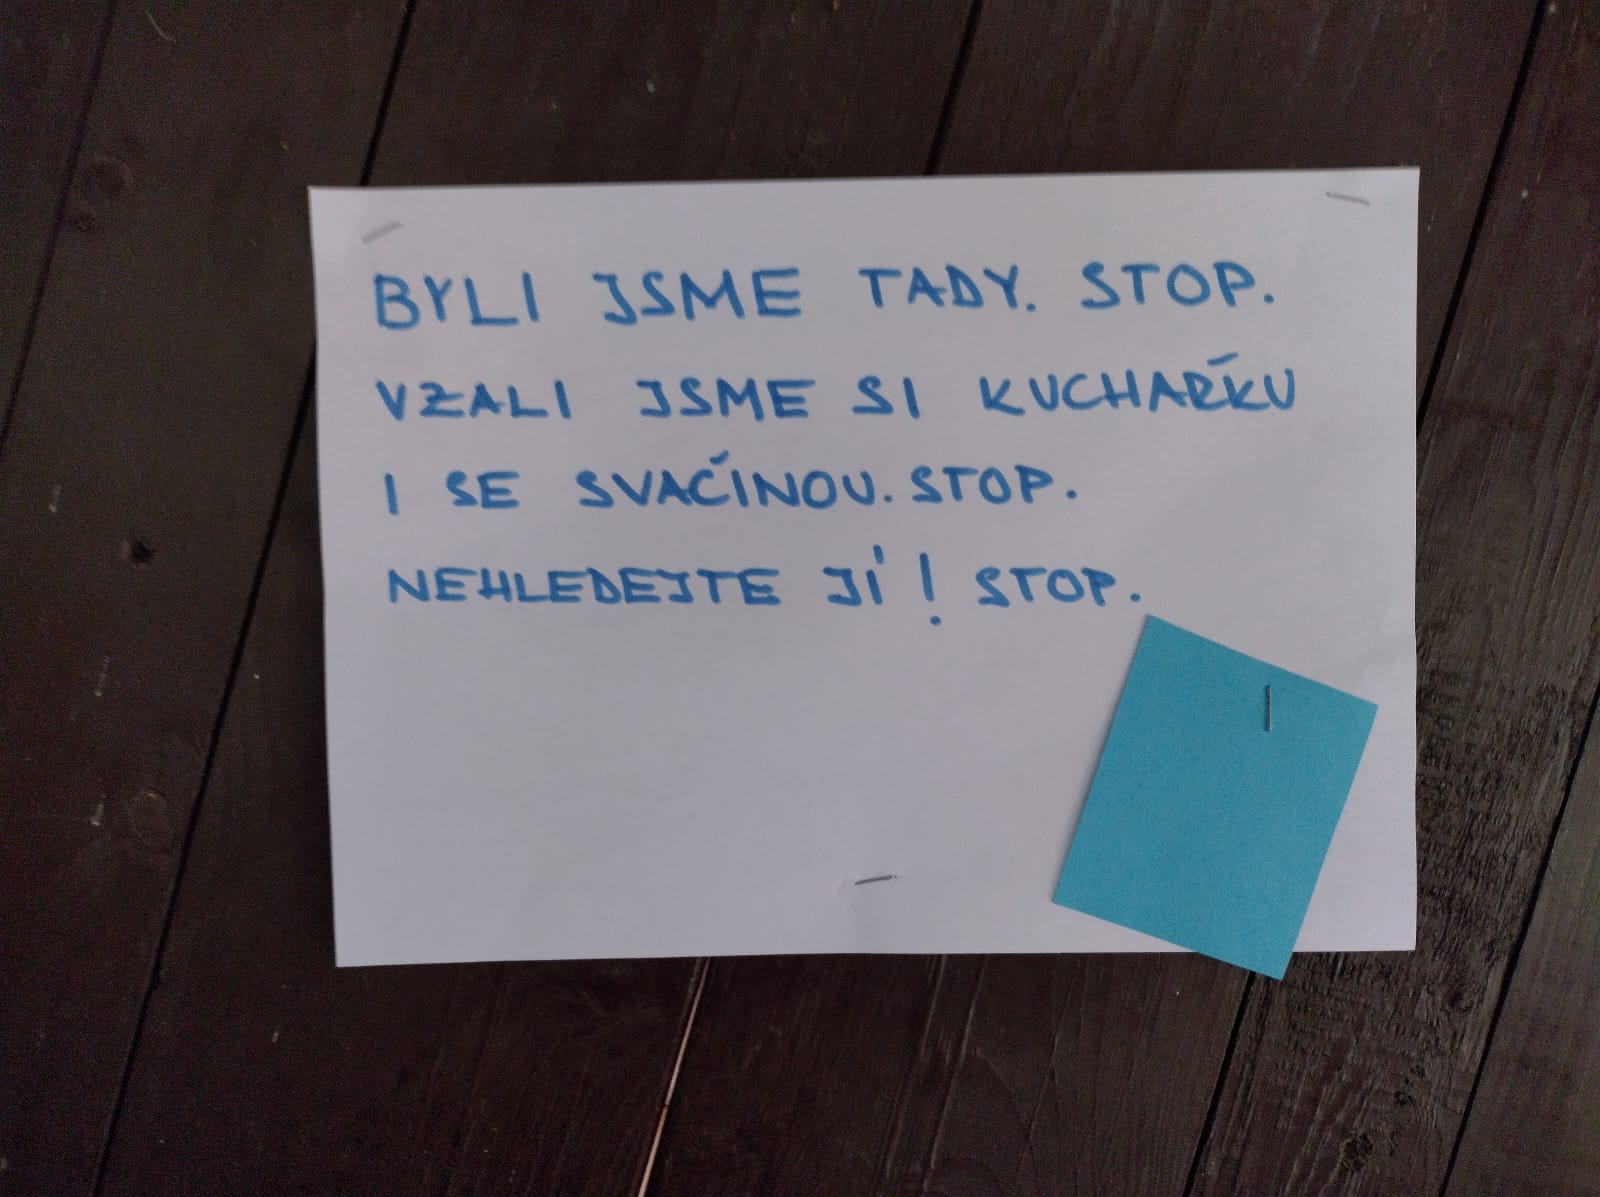 BYLI JSME TADY. STOP.
VZALI JSME SI KUCHAŘKU
I SE SVAČINOU. STOP.
NEHLEDEJTE JÍ! STOP.